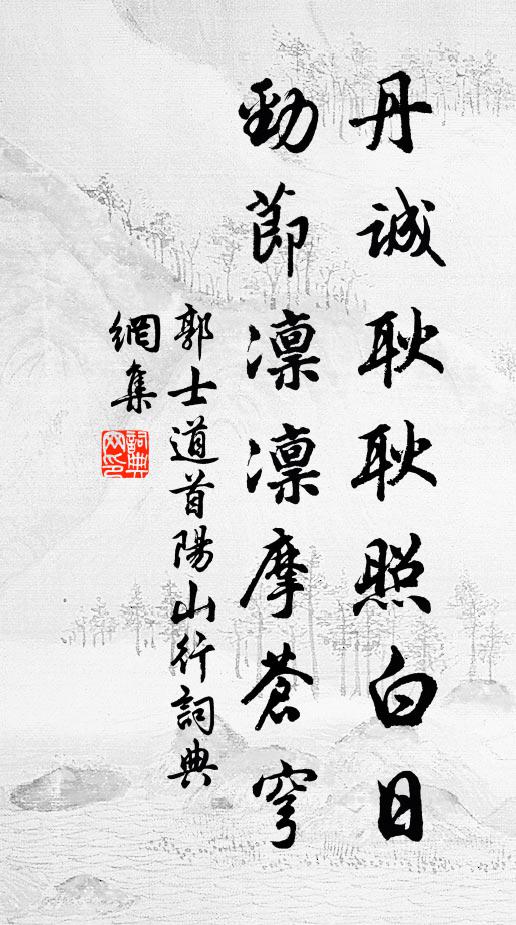 丹誠耿耿照白日
勁節凛凛摩蒼穹
郭士道首陽山行詞典
網集
詞典網印